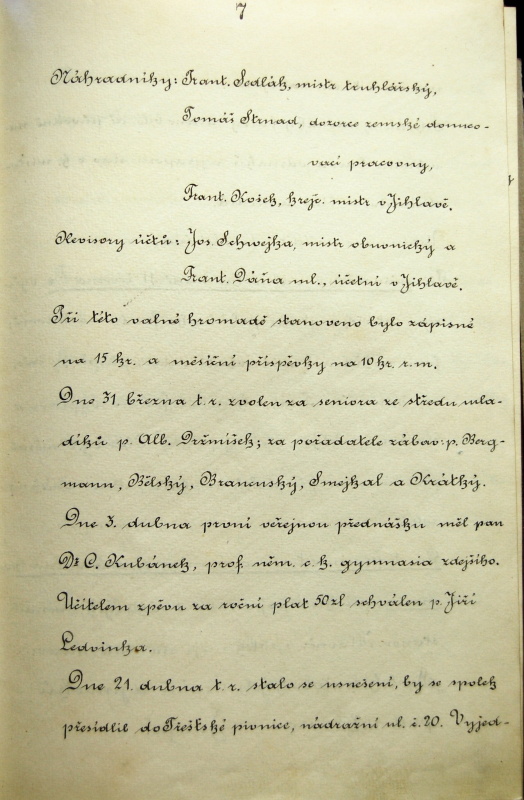 7
Náhradníky: Frant. Sedlák, mistr truhlářský,
Tomáš Strnad, dozorce zemské donuco-
vací pracovny,
Frant. Košek, krejč. mistr v Jihlavě.
Revisory účtů: Jos. Schwejka, mistr obuvnický a
Frant. Dáňa ml., účetní v Jihlavě.
Při této valné hromadě stanoveno bylo zápisné
na 15 kr. a měsíční příspěvky na 10 kr. r. m.
Dne 31. března t. r. zvolen za seniora ze středu mla-
díků p. Alb. Držmíšek; za pořadatele zábav: p. Berg-
mann, Bělský, Branenský, Smejkal a Krátký.
Dne 3. dubna první veřejnou přednášku měl pan
Dr C. Kubánek, prof. něm. c. k. gymnasia zdejšího.
Učitelem zpěvu za roční plat 50 zl schválen p. Jiří
Ledvinka.
Dne 21. dubna t. r. stalo se usnešení, by se spolek
přesídlil do Třeštské pivnice, nádražní ul. č. 20. Vyjed-